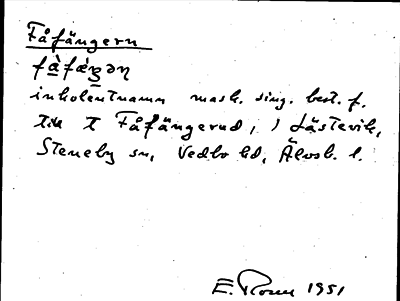 Fåfängern
fàfæŋən
inbolentnamn mask. sing. best. f.
till t Fåfängerud, i Låstevik,
Steneby sn, Vedbo hd, Älvsb. l.
E. Rosen 1951